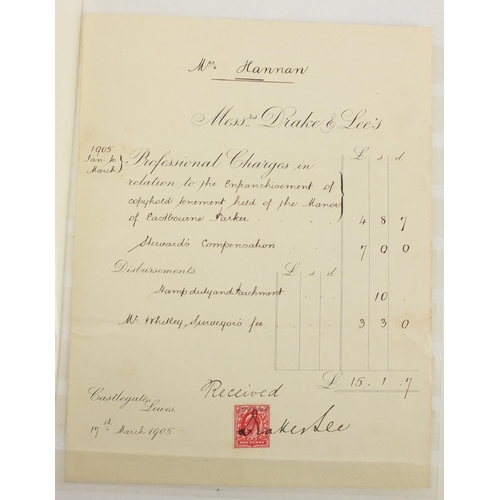 Mrs. Hannan
Messrs Drake & Lee's
1905
Jan. to
March
£ s d
Professional Charges in
relation to the Enfranchisement of
copyhold tenement held of the Manor
of Eastbourne Parker . . . 4 8 7
Steward's Compensation . . . 7 0 0
Disbursements £ s d
Stamp duty and Parchment 10 .
Mr Whitley, Surveyor's fee 3 3 0
£ 15 . 1 . 7
Castlegate, Received
Lewes.
17th March 1905 Drake & Lee
ONE PENNY